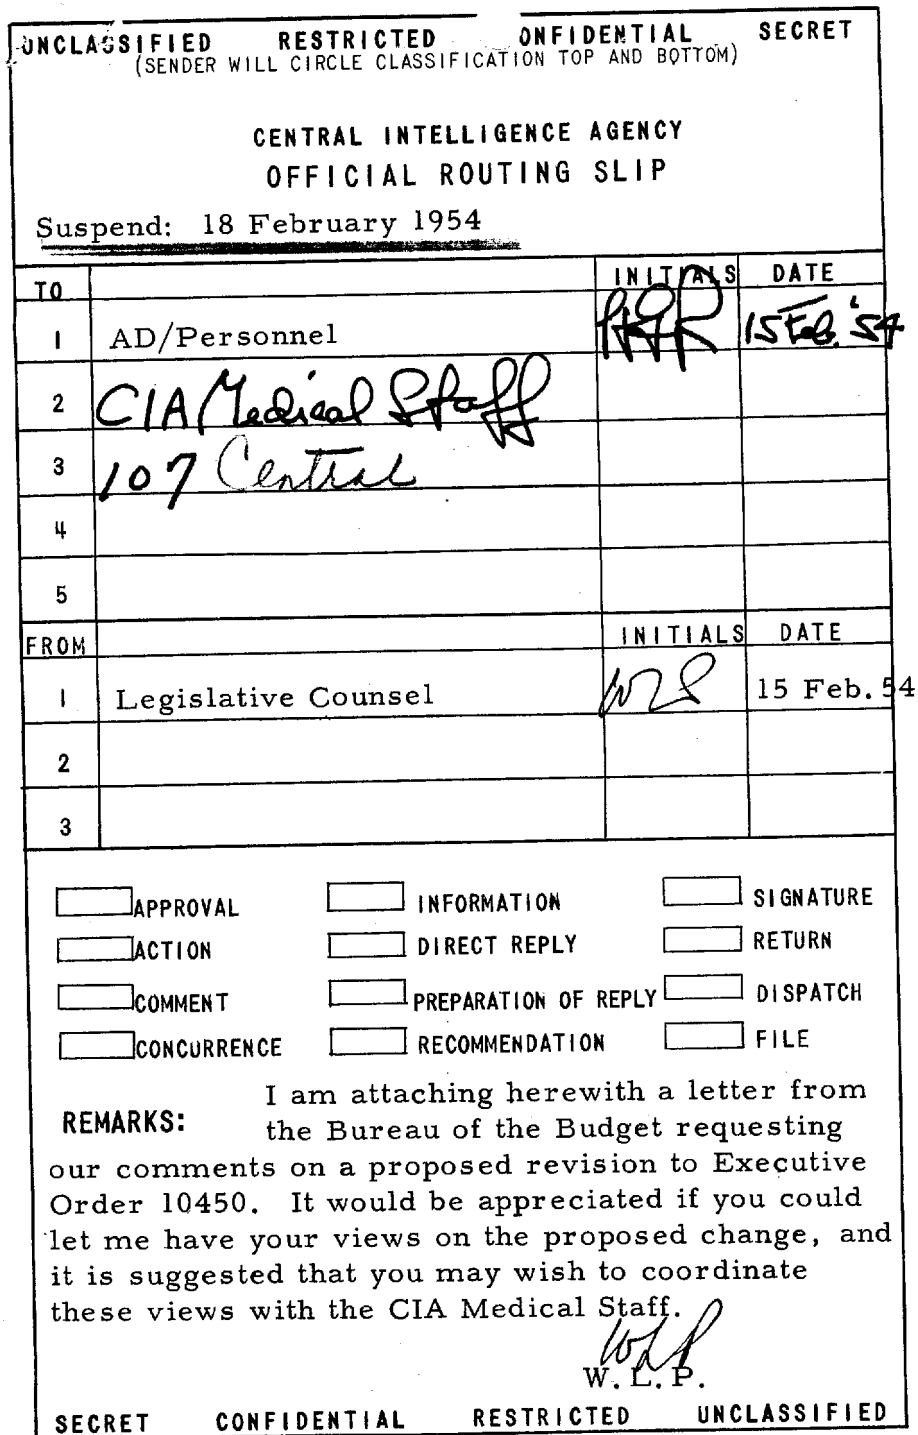 UNCLASSIFIED RESTRICTED ONFIDENTIAL SECRET
(SENDER WILL CIRCLE CLASSIFICATION TOP AND BOTTOM)
CENTRAL INTELLIGENCE AGENCY
OFFICIAL ROUTING SLIP
Suspend: 18 February 1954
TO INITIALS DATE
1 AD/Personnel HGR 15 Feb. '54
2 CIA Medical Staff
3 107 Central
4
5
FROM INITIALS DATE
1 Legislative Counsel WLP 15 Feb. 54
2
3
APPROVAL INFORMATION SIGNATURE
ACTION DIRECT REPLY RETURN
COMMENT PREPARATION OF REPLY DISPATCH
CONCURRENCE RECOMMENDATION FILE
REMARKS: I am attaching herewith a letter from
the Bureau of the Budget requesting
our comments on a proposed revision to Executive
Order 10450. It would be appreciated if you could
let me have your views on the proposed change, and
it is suggested that you may wish to coordinate
these views with the CIA Medical Staff.
WLP
W. L. P.
SECRET CONFIDENTIAL RESTRICTED UNCLASSIFIED